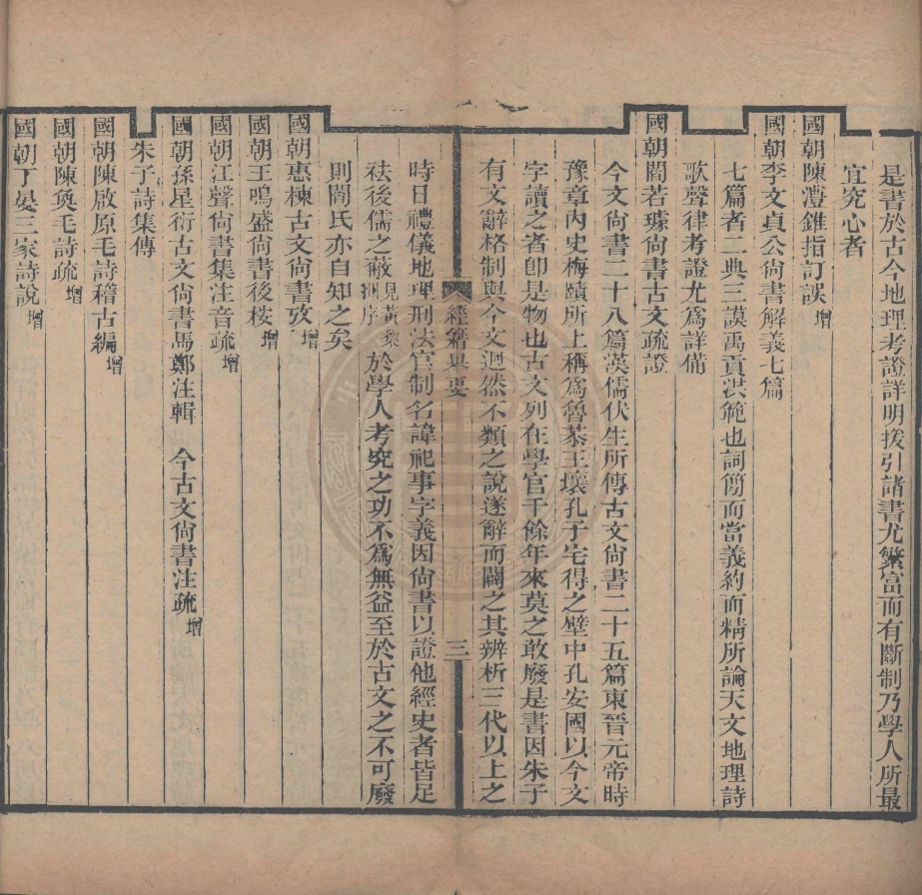 是書於古今地理考證詳明援引諸書尤繁富而有斷制乃學人所最
宜究心者
國朝陳澧錐指訂誤增
國朝李文貞公尙書解義七篇
七篇者二典三謨禹貢洪範也詞簡而當義約而精所論天文地理詩
歌聲律考證尤爲詳備
國朝閻若璩尙書古文疏證
今文尙書二十八篇漢儒伏生所傳古文尙書二十五篇東晉元帝時
豫章內史梅賾所上稱爲魯恭王壞孔子宅得之壁中孔安國以今文
字讀之者卽是物也古文列在學官千餘年來莫之敢廢是書因朱子
有文辭格制與今文迥然不類之說遂辭而闢之其辨析三代以上之
經籍舉要 三
時日禮儀地理刑法官制名諱祀事字義因尙書以證他經史者皆足
袪後儒之蔽見黃黎洲序於學人考究之功不爲無益至於古文之不可廢
則閻氏亦自知之矣
國朝惠棟古文尙書攷增
國朝王鳴盛尙書後案增
國朝江聲尙書集注音疏增
國朝孫星衍古文尙書馬鄭注輯 今古文尙書注疏增
朱子詩集傳
國朝陳啟原毛詩稽古編增
國朝陳奐毛詩疏增
國朝丁晏三家詩說增